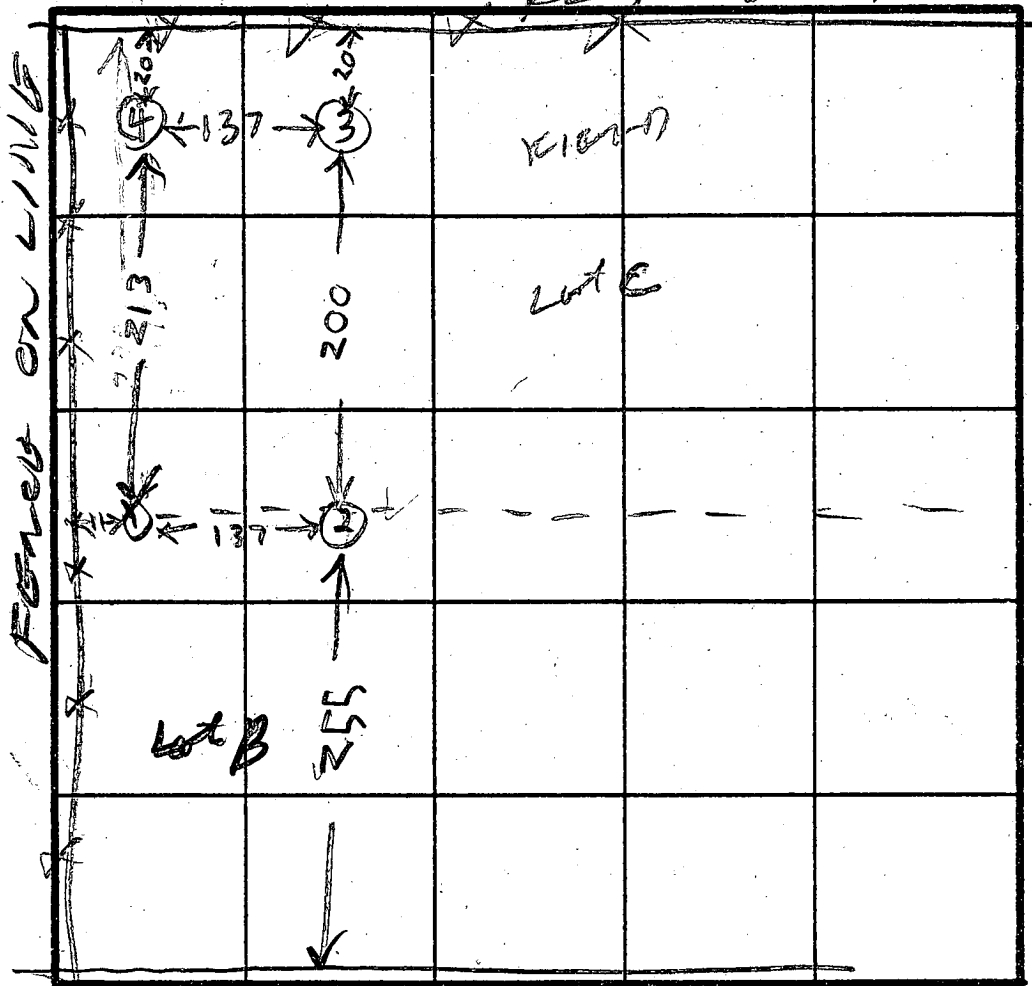 FENCE ON LINE
20
20
4
137
3
213
200
Lot C
11
1
137
2
255
Lot B